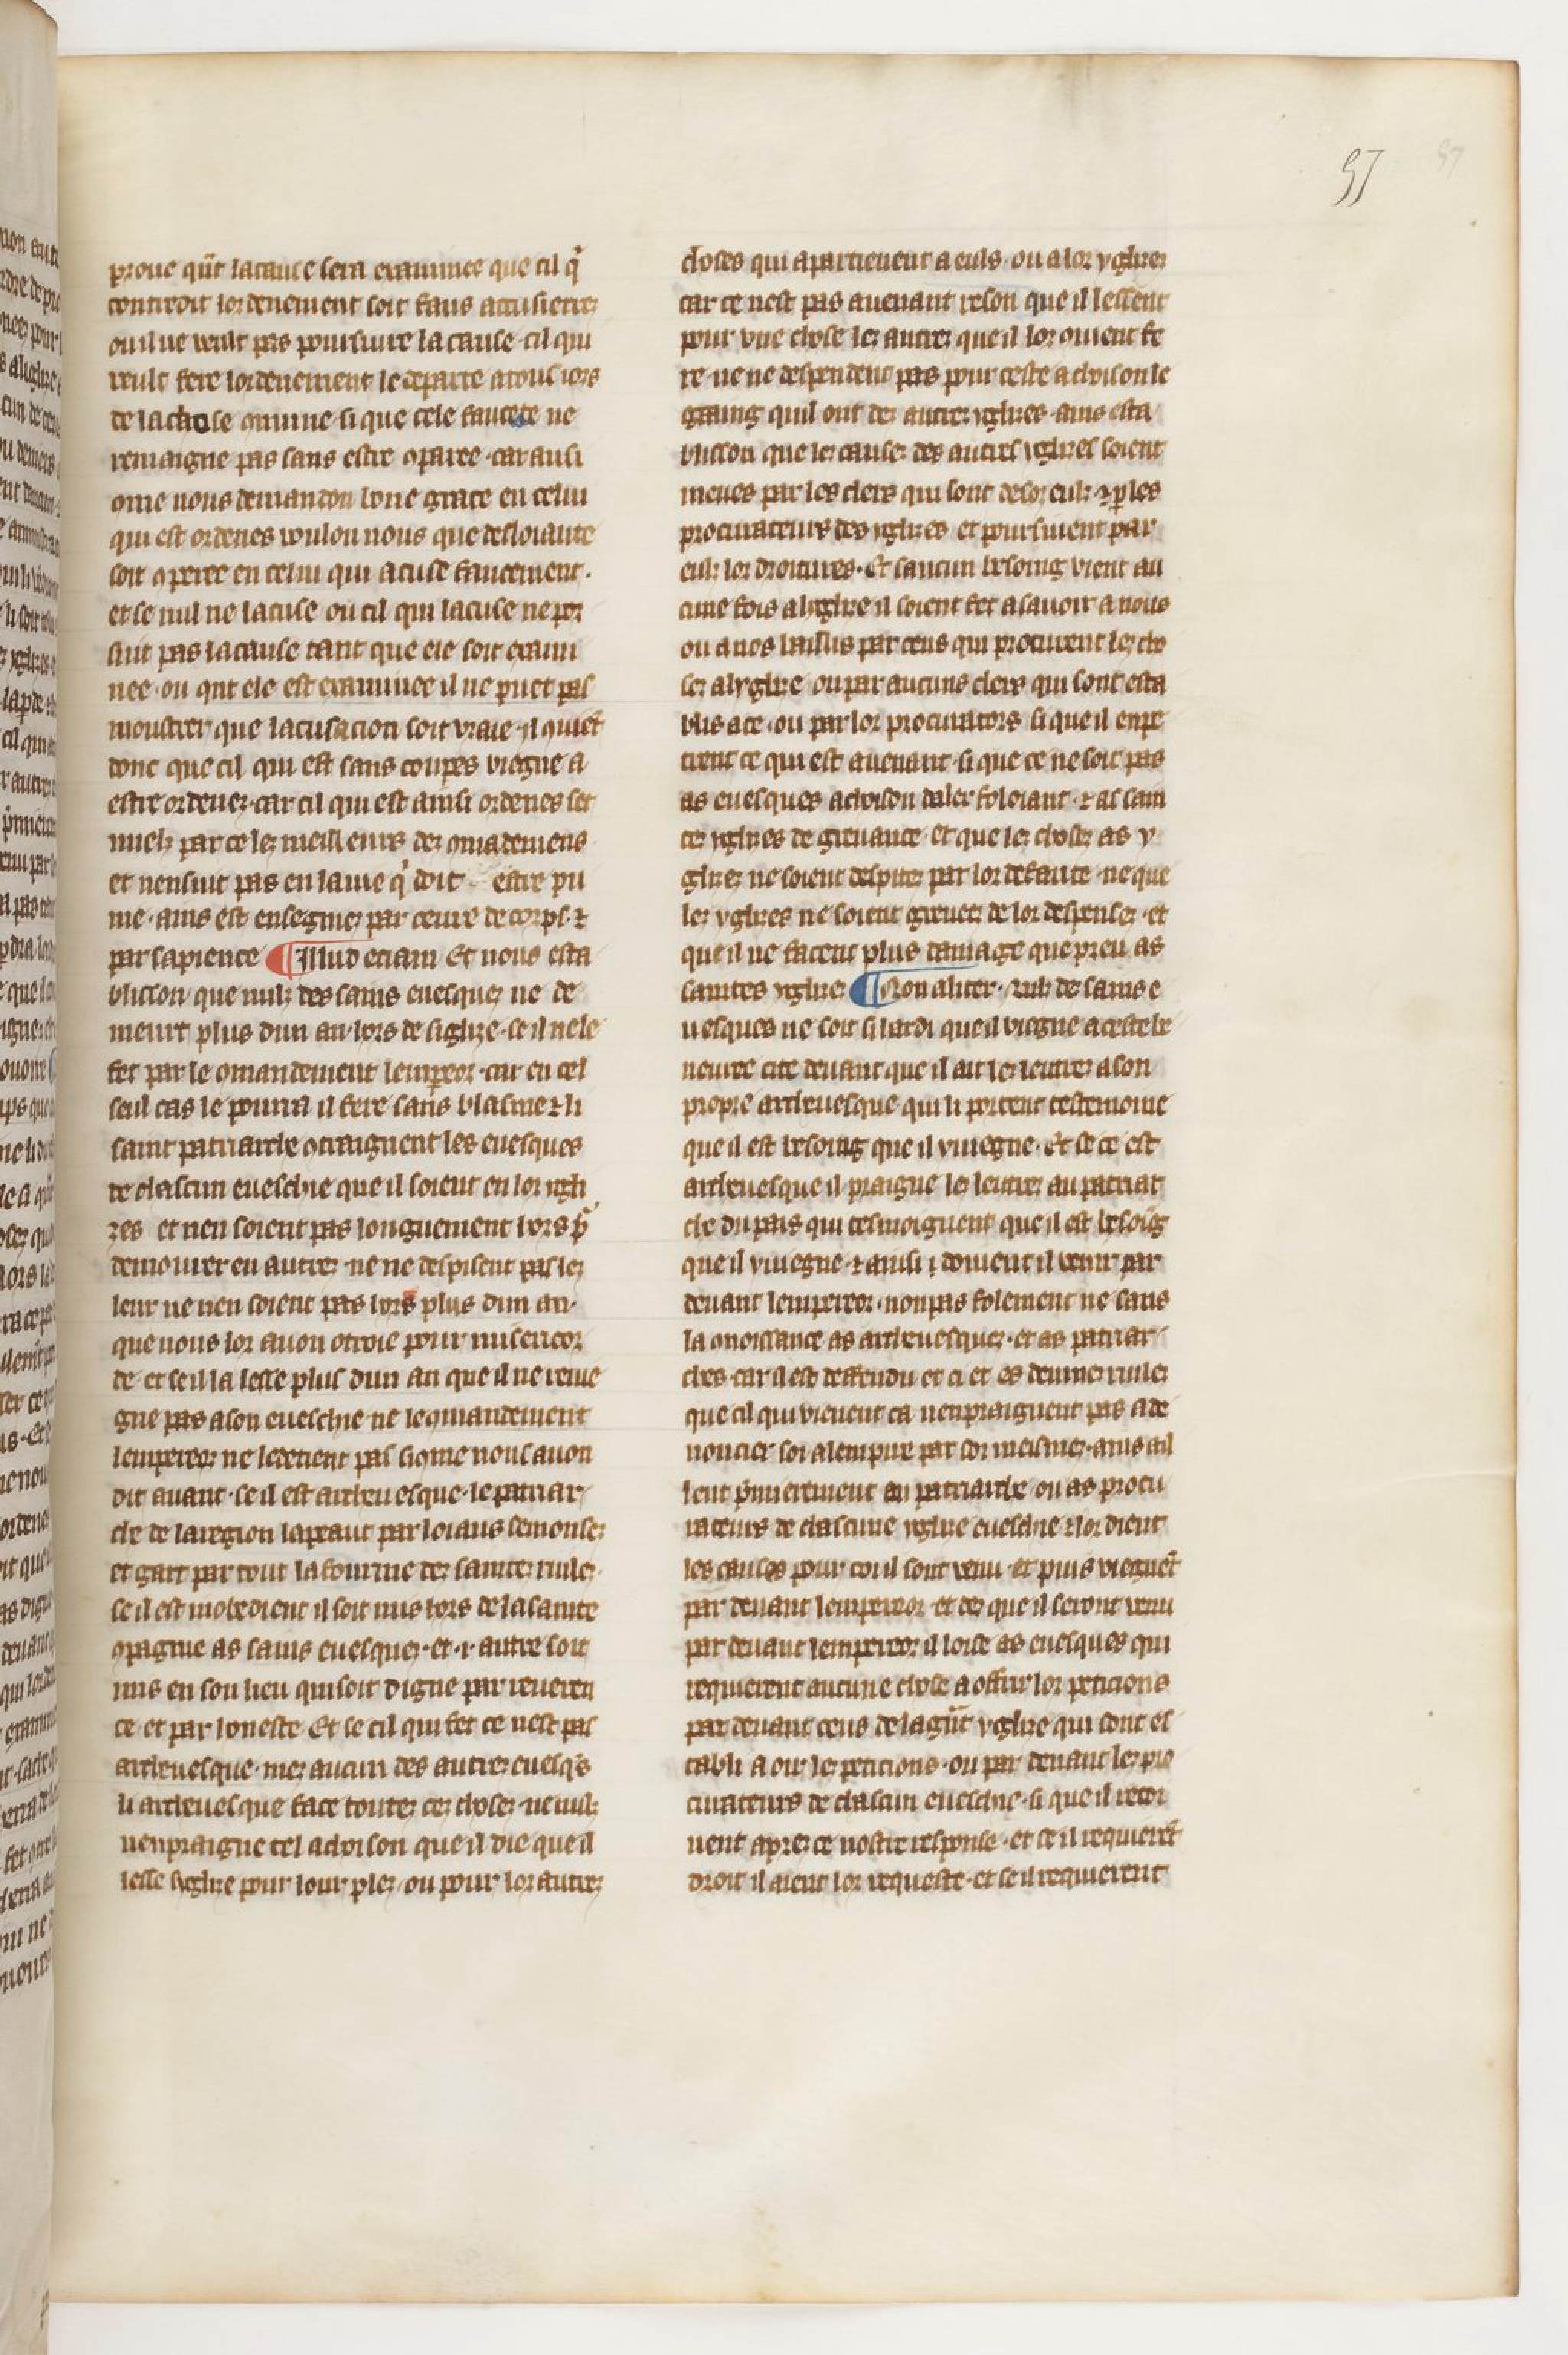 57
proue qu̅t la cause sera examinee que cil q̾
contredit lordenement soit faus accusierres
ou il ne veult pas poursuiure la cause · cil qui
veult fere lordenement se departe a tous iors
de la chose ꝯmune si que cele faucete ne
remaigne pas sans estre ꝯparee · car ausi
ꝯme nous demandon bone grace en celui
qui est ordenes voulon nous que desloiaute
soit ꝯperee en celui qui acuse faucement ·
et se nul ne lacuse ou cil qui lacuse ne por
suit pas la cause tant que ele soit exami
nee · ou qnt ele est examinee il ne puet pas
moustrer que lacusacion soit vraie · il ꝯuie̅t
donc que cil qui est sans coupes viegne a
estre ordenez · car cil qui est ainsi ordenes set
miels par ce les meilleurs des ꝯmademens
et nensuit pas en lame q̾ doit estre pu
nie · ains est ensegniez par ceure de corps · ⁊
par sapience ¶ Illud etiam Et nous esta
blisson que nulz des sains euesques ne de
meurt plus dun an · hors de sigl̾ze · se il ne le
fet par le ꝯmandement lemꝑeor · car en cel
seul cas le pourra il fere sans blasme ⁊ li
saint patriarche ꝯtraignent les euesques
de chascun eueschie que il soient en lor ygli
zes et nen soient pas longuement hors p̾
demourer en autres · ne ne despisent pas les
leur ne nen soient pas hors plus dun an ·
que nous lor auon otroie pour misericor
de · et se il la lesse plus dun an que il ne reuie
gne pas a son eueschie ne le ꝯmandement
lempereor ne le detient pas si ꝯme nous auon
dit auant · se il est archeuesque · le patriar
che de la region lapeaut par loiaus semonses
et gart par tout la fourme des saintes riules ·
se il est inobedient il soit mis hors de la sainte
ꝯpagnie as sains euesques · et · i · autre soit
mis en son lieu qui soit digne par reueren
ce et par honeste Et se cil qui fet ce nest pas
archeuesque · mes aucun des autres euesq̾s
li archeuesque face toutes ces choses · ne nulz
nenpraigne tel achoison que il die que il
lesse siglize pour lour ples · ou pour lor autres
choses qui apartienent a euls · ou a lor yglizes
car ce nest pas auenant reson que il lessent
pour vne chose les autres que il lor ꝯuient fe
re · ne ne despendent pas pour ceste achoison le
graing quil ont des autres yglizes · ains esta
blisson que les causes des autres yglizes soient
menes par les clers qui sont desoz eulz · ⁊ ꝑ les
procurateurs des yglizes et poursuient par
eulz lor droitures · Et saucun besoing vient au
cune fois a liglize il soient fet asauoir a nous
ou a nos baillis par ceus qui procurent les cho
ses a lyglize ou par aucuns clers qui sont esta
blis a ce · ou par lor procurators si que il enpe
trent ce qui est auenant · si que ce ne soit pas
as euesques achoison daler foloiant · ⁊ as sain
tes yglizes de greuance · et que les choses as y
glizes ne soient despites par lor defaute · ne que
les yglizes ne soient greuees de lor despenses · et
que il ne facent plus damage que preu as
saintes yglizes ¶ Non aliter · Nulz des sains e
uesques ne soit si hardi que il viegne a ceste be
neuree cite deuant que il ait les lettres a son
propre archeuesque qui li portent testemoine
que il est besoing que il y viegne · Et se ce est
archeuesque il praigne les lettres au patriar
che du pais qui tesmoignent que il est besoi̅g
que il y viegne · ⁊ ainsi i doiuent il venir par
deuant lempereor · non pas folement ne sans
la ꝯnoissance as archeuesques · et as patriar
ches · car il est deffendu et ci et es deuines riules
que cil qui vienent ca nenpraignent pas a de
noncier soi a lempire par soi meismes · ains ail
lent p̾mierement au patriarche ou as procu
rateurs de chascune yglize eueschie ⁊ lor dient
les causes pour coi il sont venu · et puis viegne̅t
par deuant lempereor et des que il seront venu
par deuant lempereor il loise as euesques qui
requierent aucune chose a offrir lor peticions
par deuant ceus de la gra̅t yglize qui sont es
tabli a oir les peticions · ou par deuant les pro
curateurs de chascun eueschie · si que il recoi
uent apres ce nostre response · et se il requiere̅t
droit il aient lor requeste · et se il requierent